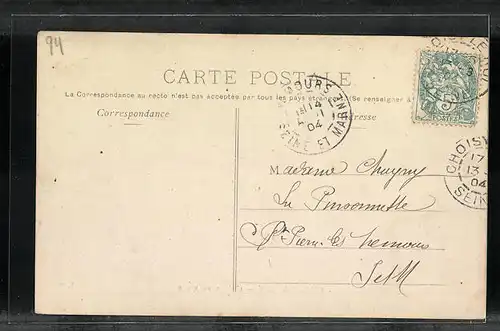 94
CARTE POSTALE
La Correspondance au recto n'est pas acceptée par tous les pays étrangers (Se renseigner à
Correspondance
MOURS
14
04
SEINE ET MARNE
5
POSTES
CHOISY
17
13
04
SEIN
Madame Chuquy
La
St Pierre les Nemours
S et M